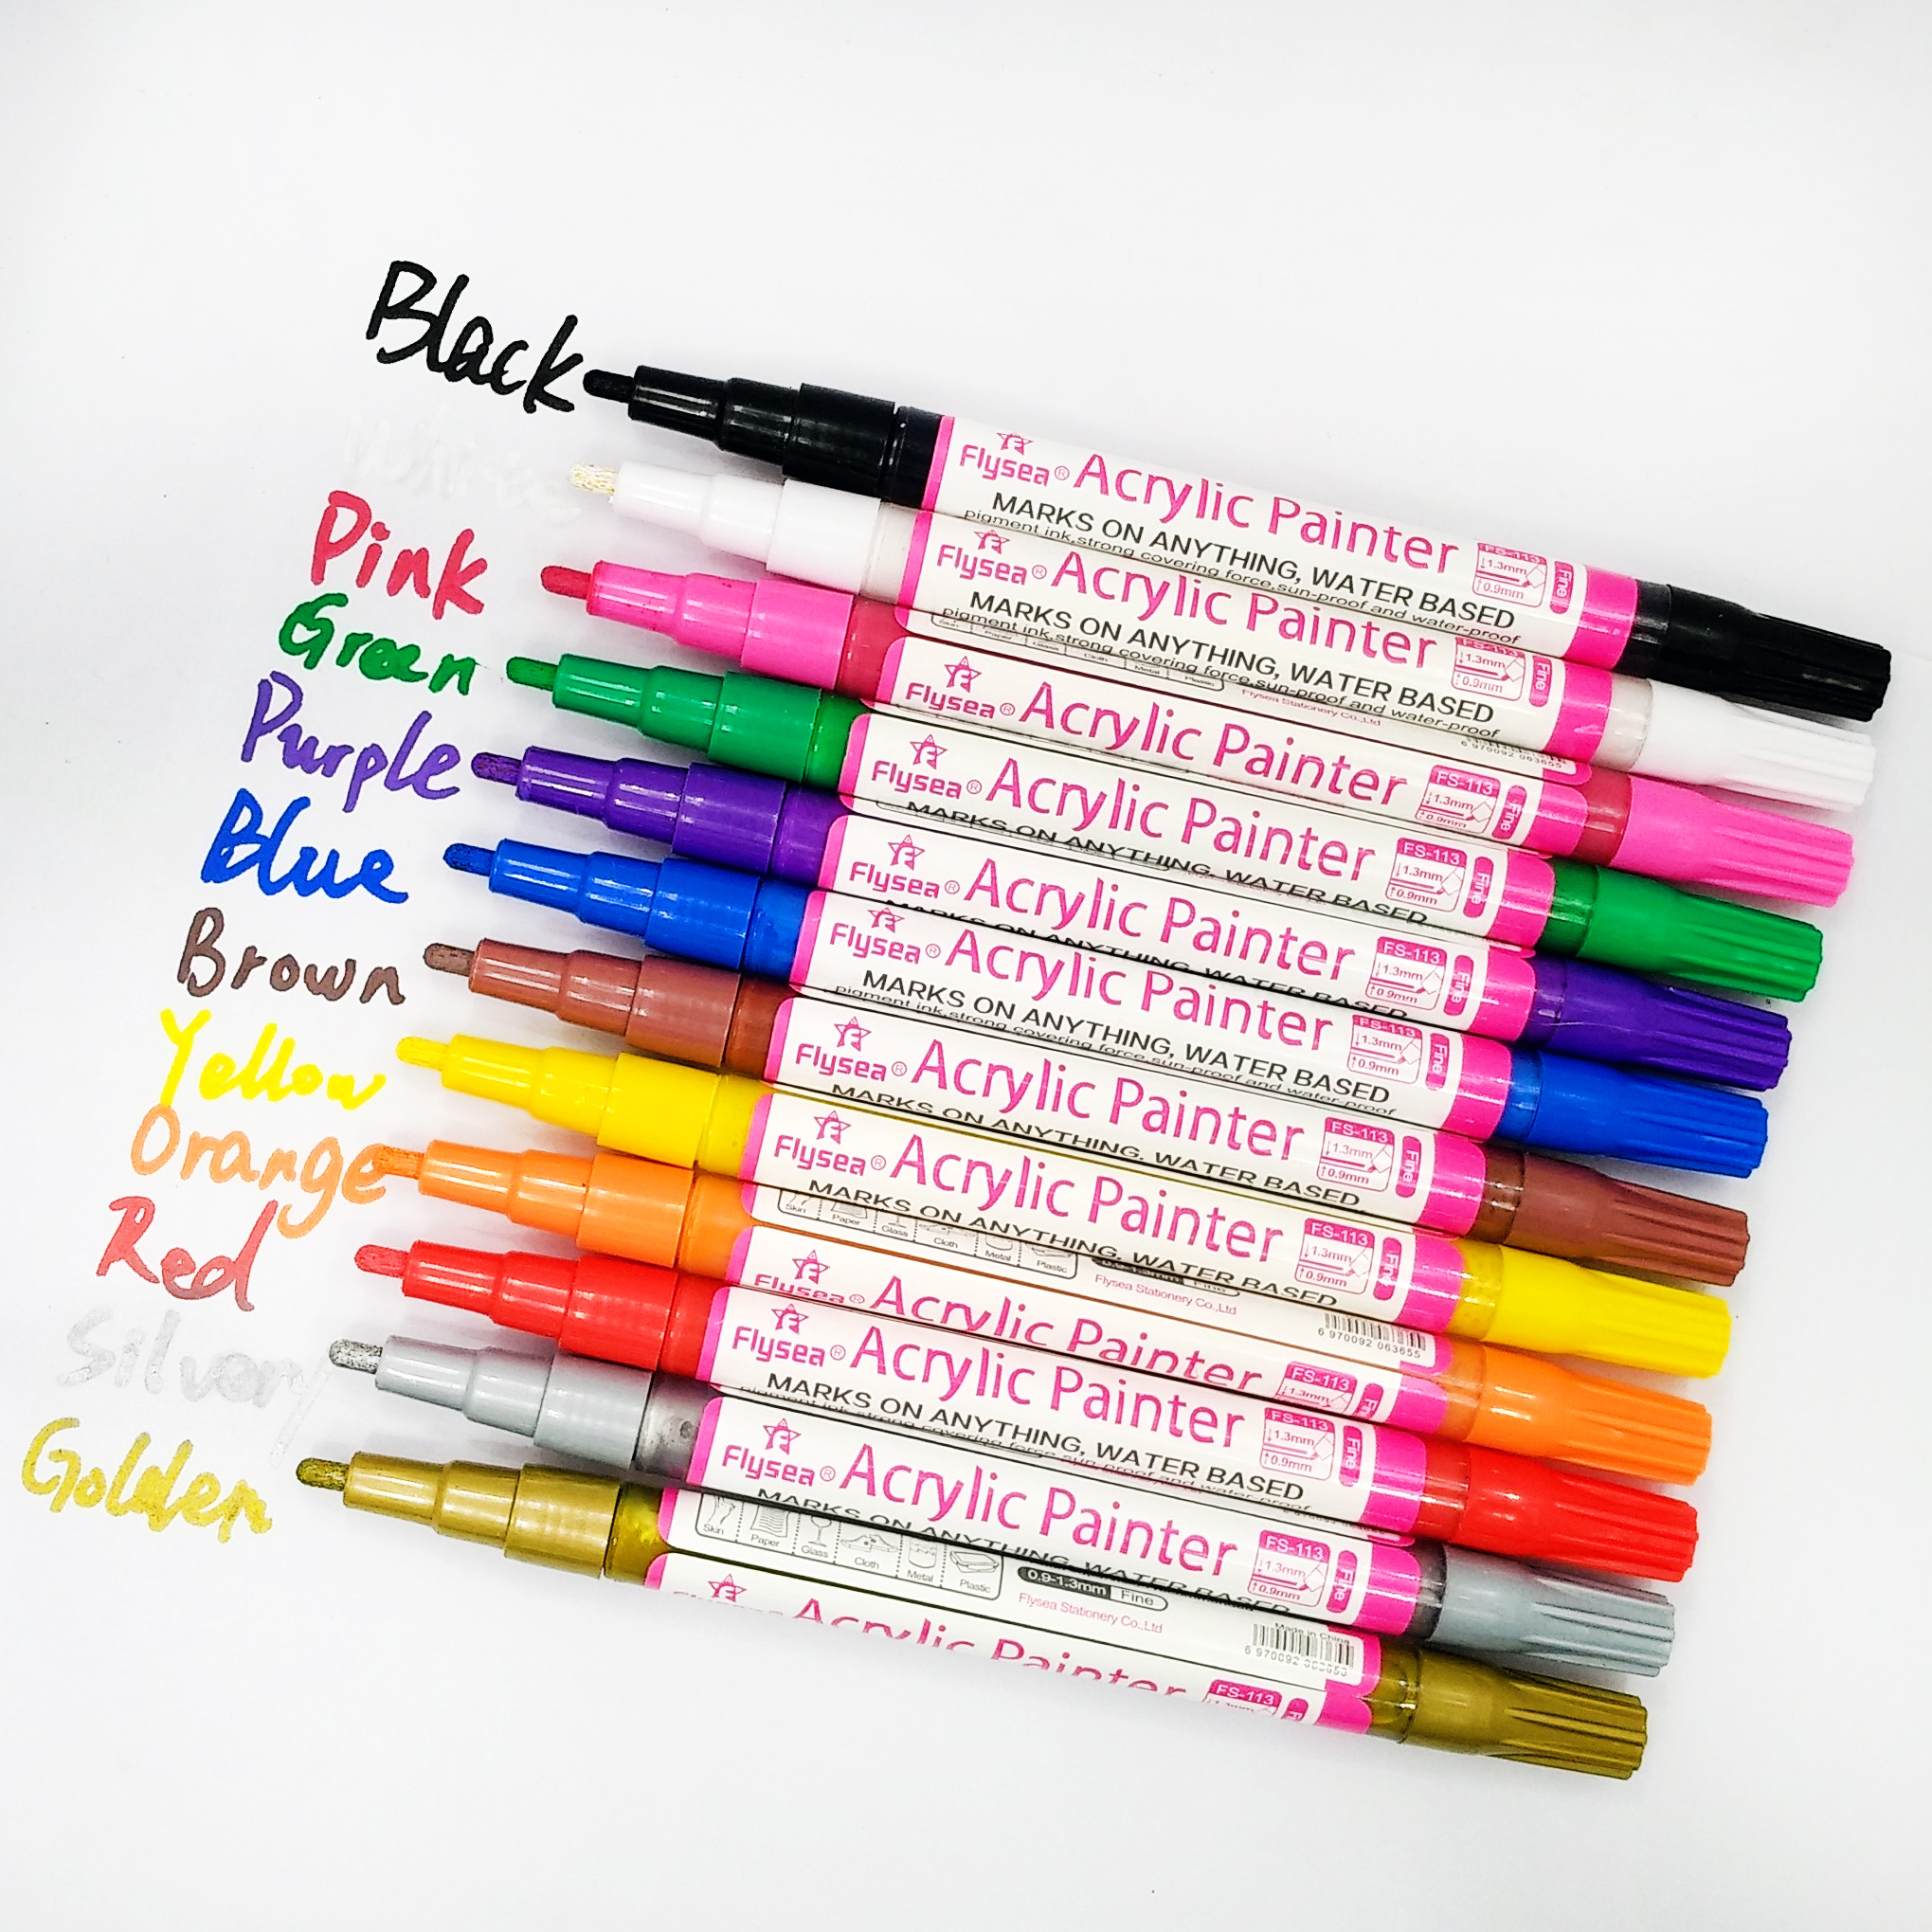 Black
White
Pink
Green
Purple
Blue
Brown
Yellow
Orange
Red
Silvery
Golden
Flysea® Acrylic Painter
MARKS ON ANYTHING, WATER BASED
pigment ink,strong covering force,sun-proof and water-proof
FS-113
1.3mm
0.9mm
Fine
Flysea® Acrylic Painter
MARKS ON ANYTHING, WATER BASED
pigment ink,strong covering force,sun-proof and water-proof
FS-113
1.3mm
0.9mm
Fine
Skin Paper Glass Cloth Metal Plastic
Flysea Stationery Co.,Ltd
6 970092 063655
Flysea® Acrylic Painter
FS-113
1.3mm
0.9mm
Fine
Flysea® Acrylic Painter
MARKS ON ANYTHING, WATER BASED
FS-113
1.3mm
0.9mm
Fine
Flysea® Acrylic Painter
MARKS ON ANYTHING, WATER BASED
FS-113
1.3mm
0.9mm
Fine
Flysea® Acrylic Painter
MARKS ON ANYTHING, WATER BASED
pigment ink,strong covering force,sun-proof and water-proof
FS-113
1.3mm
0.9mm
Fine
Flysea® Acrylic Painter
MARKS ON ANYTHING, WATER BASED
FS-113
1.3mm
0.9mm
Fine
Flysea® Acrylic Painter
MARKS ON ANYTHING, WATER BASED
FS-113
1.3mm
0.9mm
Fine
Skin Paper Glass Cloth Metal Plastic
Fine
Flysea Stationery Co.,Ltd
6 970092 063655
Flysea® Acrylic Painter
FS-113
1.3mm
Flysea® Acrylic Painter
MARKS ON ANYTHING, WATER BASED
pigment ink,strong covering force,sun-proof and water-proof
FS-113
1.3mm
0.9mm
Fine
Flysea® Acrylic Painter
MARKS ON ANYTHING, WATER BASED
FS-113
1.3mm
0.9mm
Fine
Skin Paper Glass Cloth Metal Plastic
0.9-1.3mm Fine
Flysea Stationery Co.,Ltd
Made in China
Acrylic Painter
FS-113